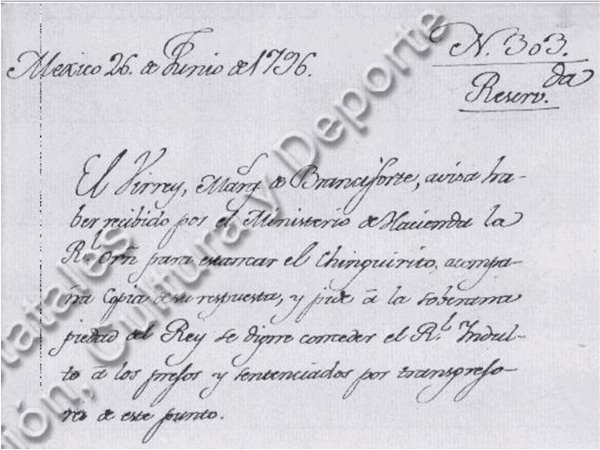 Mexico 26. de Junio de 1796.
N. 303.
Reserv.da
El Virrey, Marq.s de Branciforte, avisa ha-
ber recibido por el Ministerio de Hacienda la
R.l Orn para estancar el Chinguirito, acompa-
ña Copia de su respuesta, y pide á la soberana
piedad del Rey se digne conceder el R.l Indul-
to á los presos y sentenciados por transgreso-
res de este punto.
tatales
ión, Cultura y Deporte